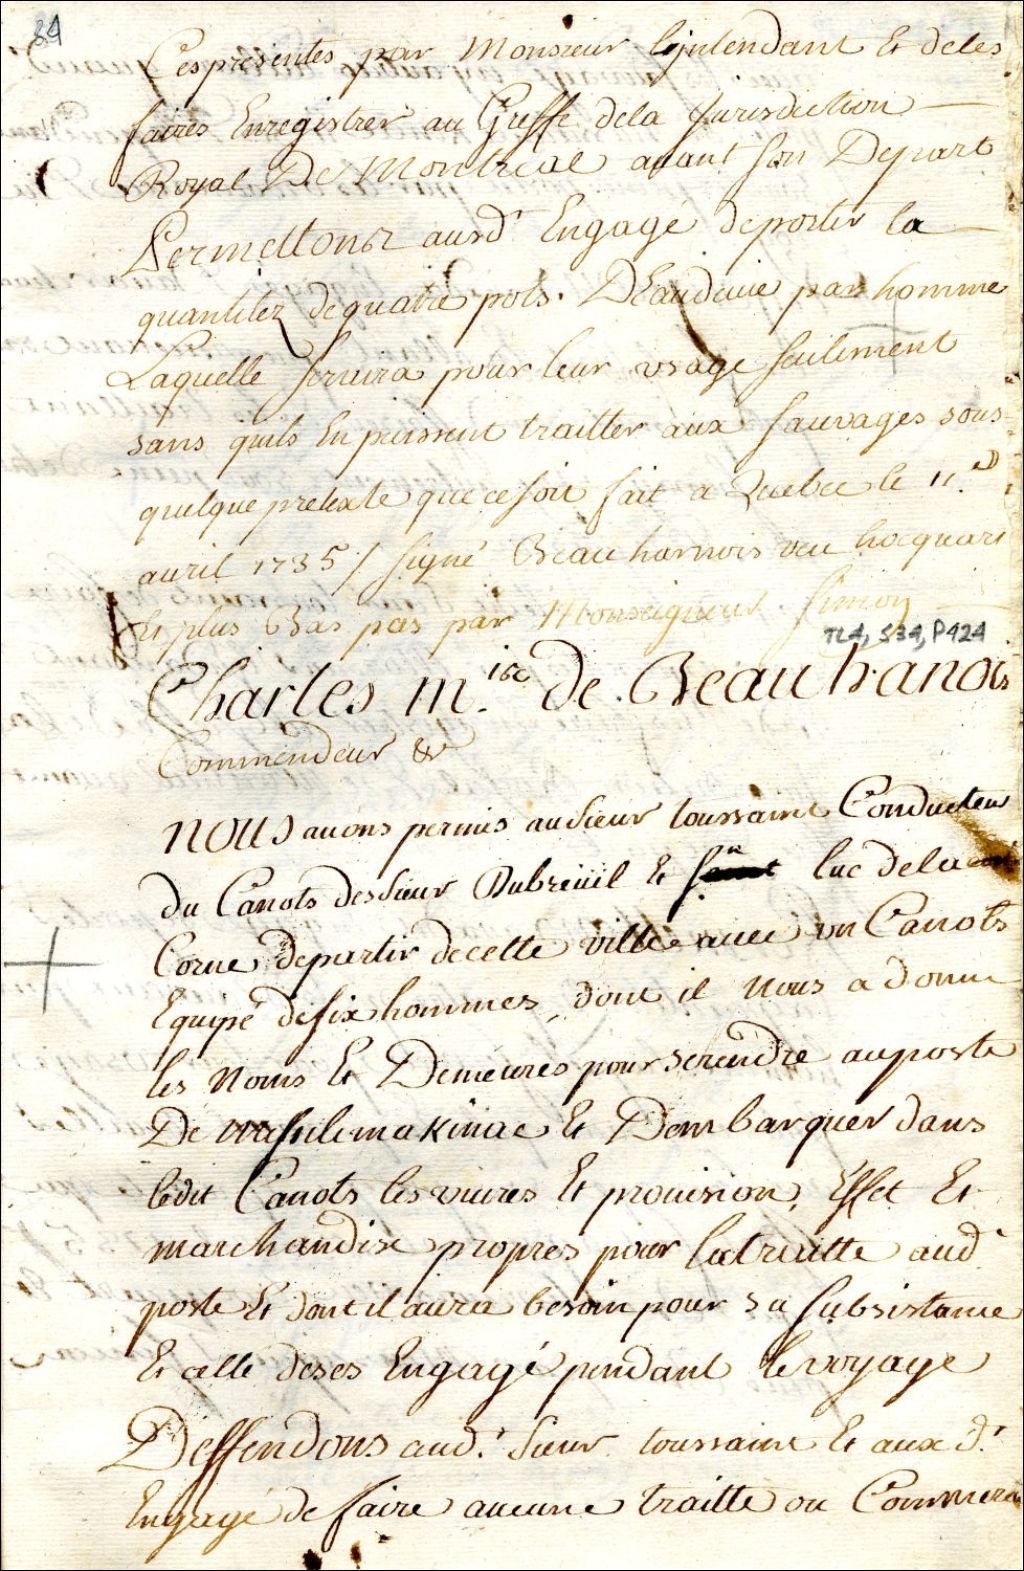 84
Cespresentes par Monsieur Lintendant Et deles
faires Enregistrer au Greffe dela Jurisdiction
Royal De Montreal auant son Depart
Permettons ausd.t Engagé deporter la
quantitez de quatre pots. DEaudeuie par homme
Laquelle seruira pour leur usage seulement
sans quils En puissent traitter aux sauvages sous
quelque pretexte que ce soit fait a Quebec le 11.e
auril 1735 / signé Beauharnois veu hocquart
Et plus Bas pas par Monseigneur Simon
TL4, S34, P424
Charles M.ise de Beauhanois
Commendeur &
NOUS auons permis au Sieur toussaint Conducteur
du Canots des Sieur Dubreüil Et luc dela
Corne departir decette ville auec un Canots
Equipé desix hommes, dont il Nous a donné
les Noms Et Demeures pour serendre auposte
De Missilimakinac Et Dembarquer dans
ledit Canots les viures Et prouision, Effet Et
marchandise propres pour latraitte aud.t
poste Et dont il aura besoin pour sa subsistance
Et celle deses Engagé pendant levoyage
Deffendons aud.t Sieur toussaint Et aux d.t
Engagé de faire aucune traitte ou Commerce